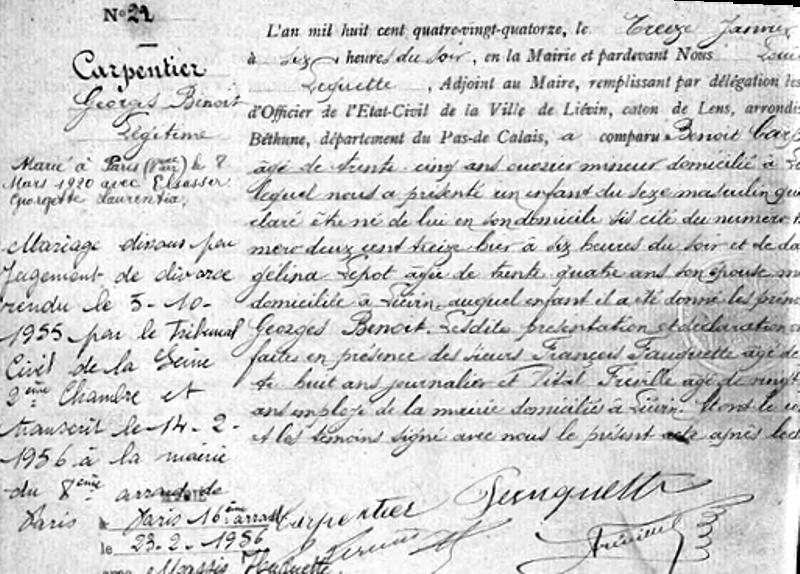 N° 22
Carpentier
Georges Benoit
Légitime
Marié à Paris le 8
Mars 1920 avec Elsasser
Georgette Laurentia.
Mariage dissous par
Jugement de divorce
rendu le 5-10-
1955 par le Tribunal
Civil de la Seine
2ème Chambre et
transcrit le 14-2-
1956 à la mairie
du 8ème arrondt de
Paris
Paris 16ème arrondt
le 23-2-1956
L'an mil huit cent quatre-vingt-quatorze, le treize Janvier
à six heures du soir, en la Mairie et pardevant Nous Louis
Lequette, Adjoint au Maire, remplissant par délégation les
d'Officier de l'Etat-Civil de la Ville de Liévin, caton de Lens, arrondis
Béthune, département du Pas-de Calais, a comparu Benoit Carp
âgé de trente cinq ans ouvrier mineur domicilié à
lequel nous a présenté un enfant du sexe masculin qu
claré être né de lui en son domicile sis cité du numéro
méro deux cent treize hier à six heures du soir et de
gélina Lepot âgée de trente quatre ans son épouse
domiciliée à Liévin, auquel enfant il a été donné les prén
Georges Benoit. Lesdites présentation et déclaration
faites en présence des sieurs François Fauquette âgé de
te huit ans journalier et Vital Fréville âgé de vingt
ans employé de la mairie domiciliés à Liévin. Et ont le
et les témoins signé avec nous le présent acte après lec
Carpentier Fauquette